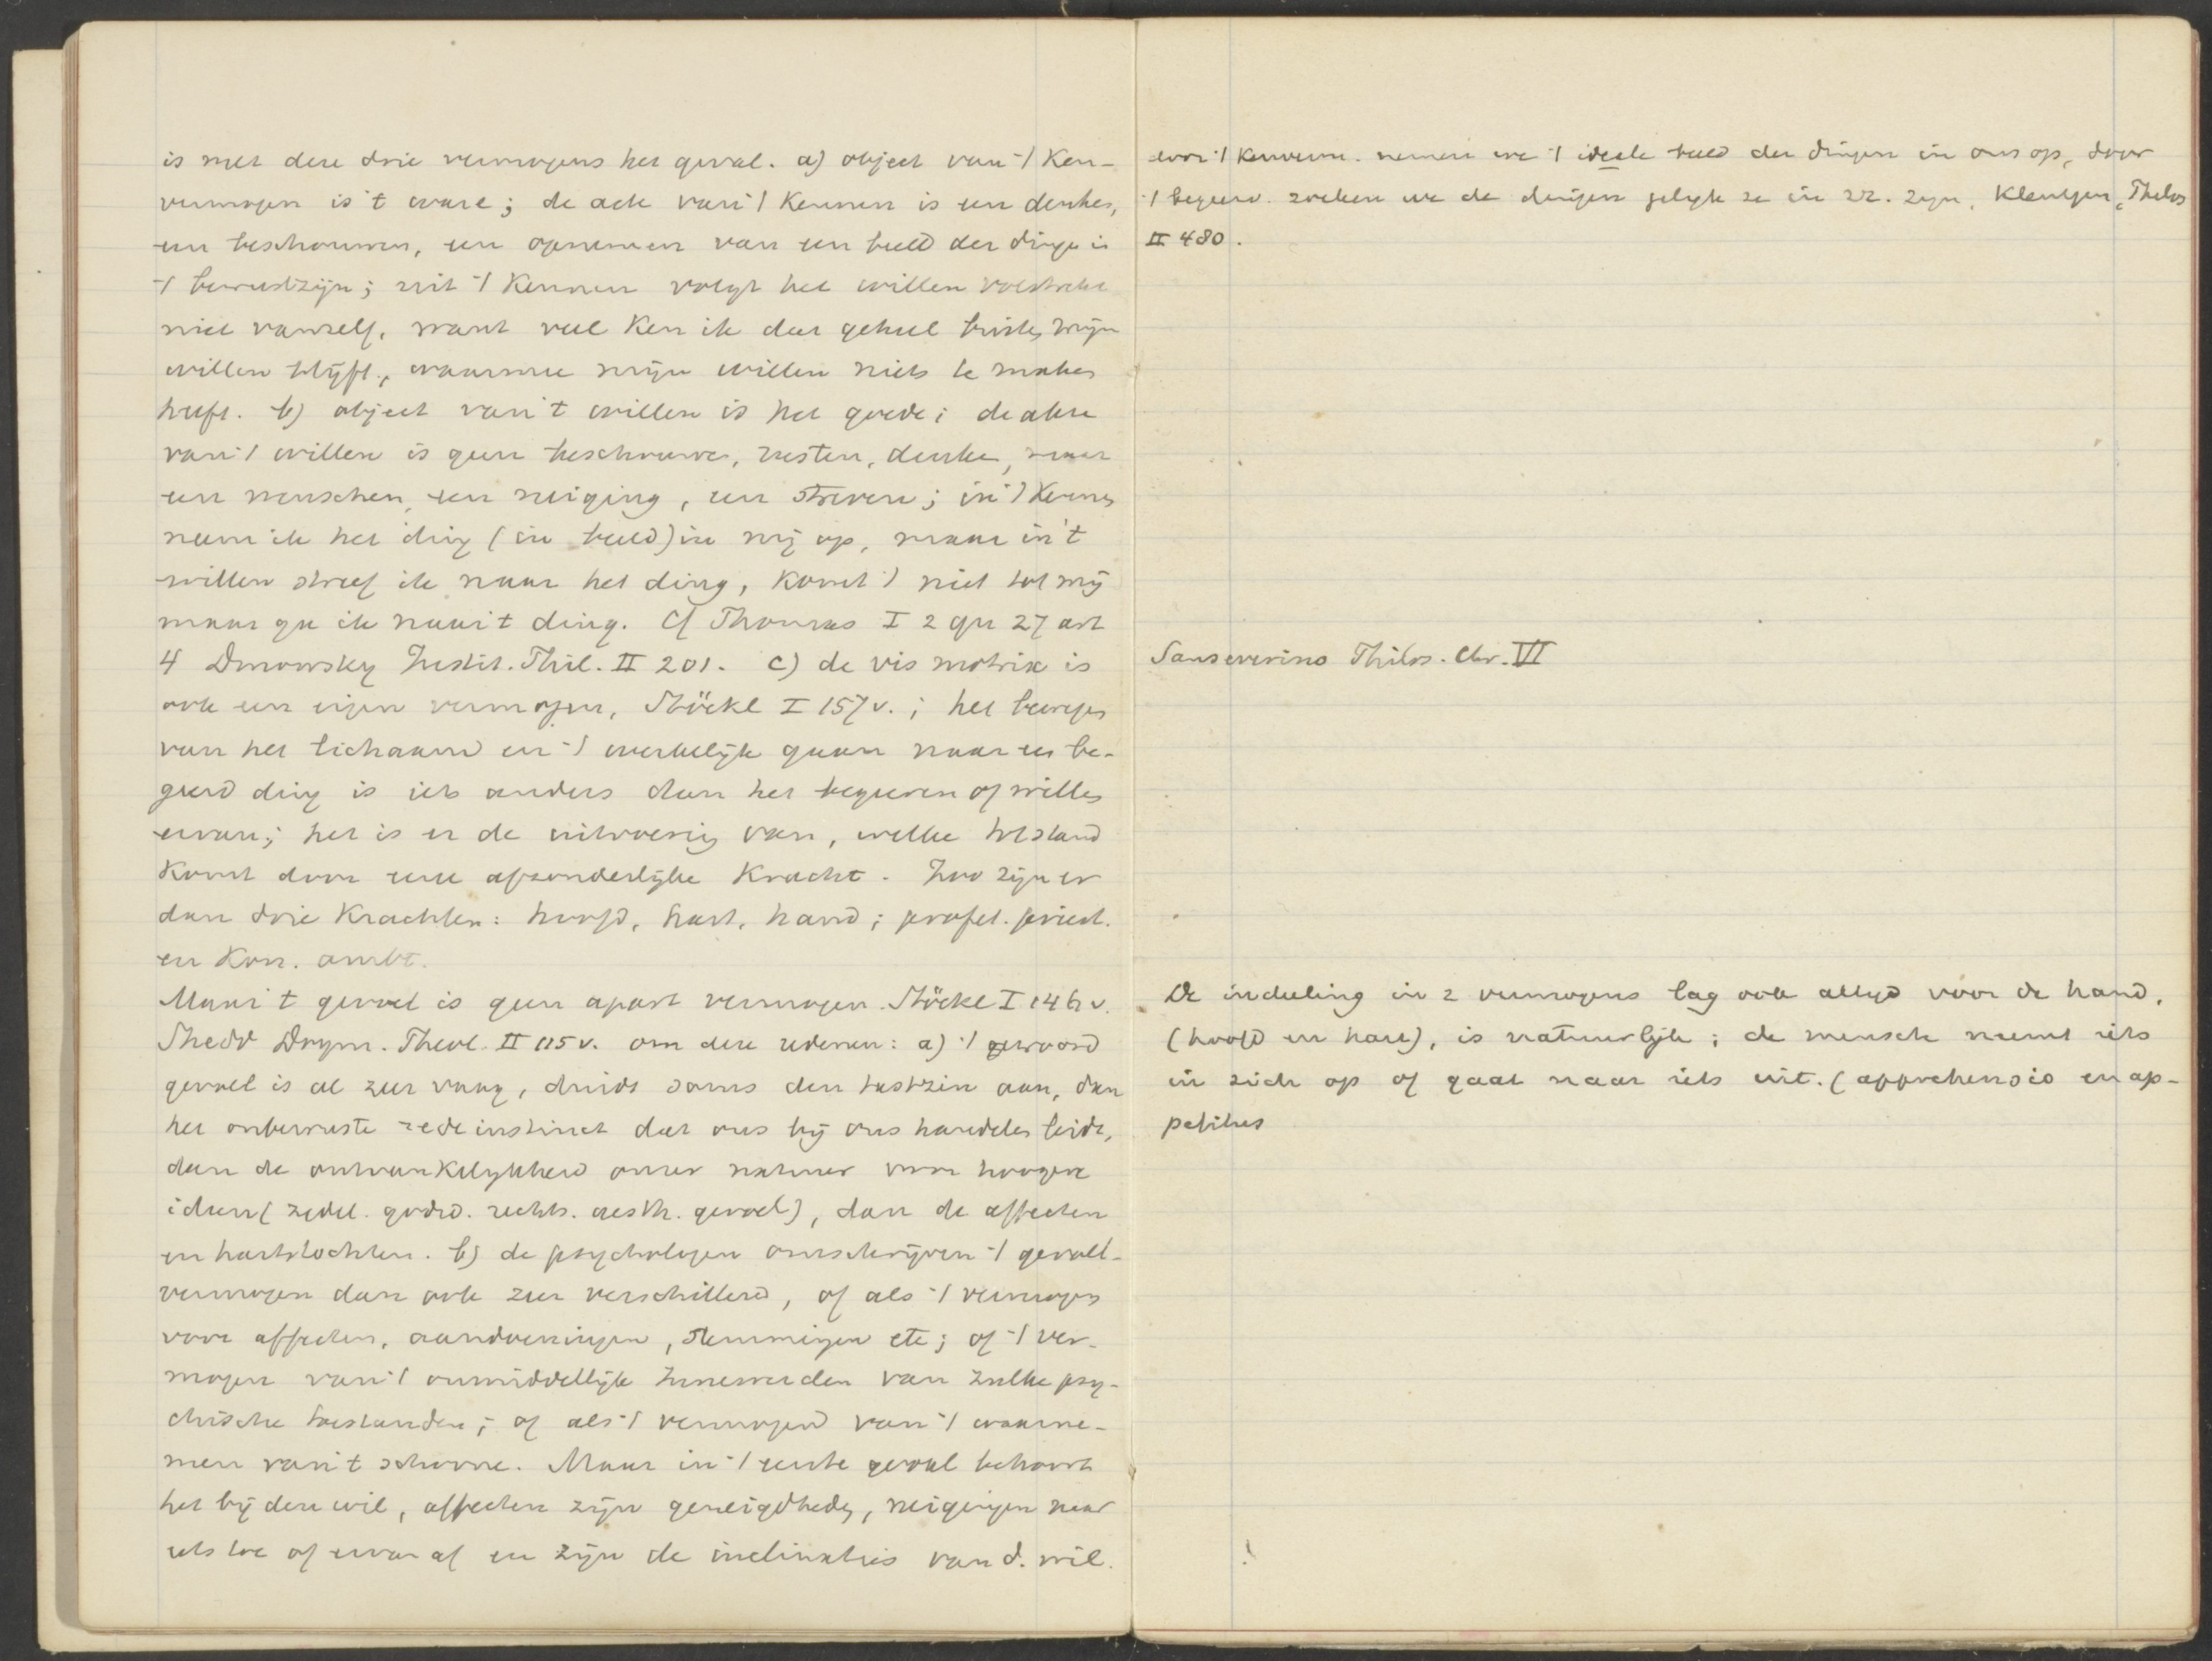 is met deze drie vermogens het geval. a) object van 't Ken-
vermogen is 't ware; de acte van 't Kennen is een denken,
een beschouwen, een opnemen van een beeld der dingen in
't bewustzijn; uit 't Kennen volgt het willen volstrekt
niet vanzelf, want veel Ken ik dat geheel buiten mijn
willen blijft, waarmee mijn willen niets te maken
heeft. b) object van 't willen is het goede; de akte
van 't willen is geen beschouwen, rusten, denken, maar
een wenschen, een neiging, een streven; in 't Kennen
neem ik het ding (in beeld) in mij op, maar in 't
willen streef ik naar het ding, komt 't niet tot mij
maar ga ik naar 't ding. Cf Thomas I 2 qu 27 art
4 Dmowsky Instit. Phil. II 201. c) de vis motrix is
ook een eigen vermogen, Stöckl I 157 v.; het bewegen
van het lichaam en 't werkelijk gaan naar een be-
geerd ding is iets anders dan het begeeren of willen
ervan; het is er de uitvoering van, welke tot stand
Komt door eene afzonderlijke Kracht. Zoo zijn er
dan drie Krachten: hoofd, hart, hand; profet. priest.
en Kon. ambt.
Maar 't gevoel is geen apart vermogen. Stöckl I 146 v.
Shedd Dogm. Theol. II 115 v. om deze redenen: a) 't woord
gevoel is al zeer vaag, duidt soms den tastzin aan, dan
het onbewuste redeinstinct dat ons bij ons handelen leidt,
dan de ontvankelijkheid onzer natuur voor hoogere
ideen (zedel. godsd. rechts. aesth. gevoel), dan de affecten
en hartstochten. b) de psychologen omschrijven 't gevoel-
vermogen dan ook zeer verschillend, of als 't vermogen
voor affecten, aandoeningen, stemmingen etc; of 't ver-
mogen van 't onmiddellijk Innewerden van zulke psy-
chische toestanden; of als 't vermogen van 't waarne-
men van 't schoone. Maar in 't eerste geval behoort
het bij den wil, affecten zijn geneigdheden, neigingen naar
iets toe of ervan af en zijn de inclinaties van d. wil.
door 't Kenverm. nemen we 't ideale beeld der dingen in ons op, door
't begeerv. zoeken we de dingen gelijk ze in zz. zijn, Kleutgen, Philos
II 480.
Sanseverino Philos. Chr. VII
De indeeling in 2 vermogens lag ook altijd voor de hand,
(hoofd en hart), is natuurlijk; de mensch neemt iets
in zich op of gaat naar iets uit. (apprehensio en ap-
petitus